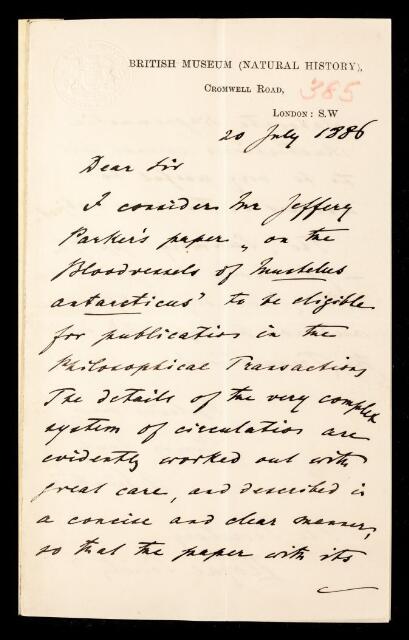 BRITISH MUSEUM (NATURAL HISTORY),
CROMWELL ROAD,
385
LONDON: S.W
20 July 1886
Dear Sir
I consider Mr Jeffery
Parker's paper „ on the
Bloodvessels of Mustelus
antarcticus" to be eligible
for publication in the
Philosophical Transactions
The details of the very complex
system of circulation are
evidently worked out with
great care, and described in
a concise and clear manner,
so that the paper with its